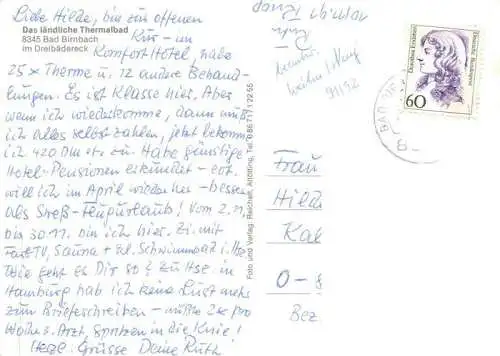 Liebe Hilde, bin zur offenen
Das ländliche Thermalbad
Kur – im
8345 Bad Birnbach
im Dreibädereck
Komfort Hotel, habe
25 x Therme u. 12 andere Behand-
lungen. Es ist Klasse hier. Aber
wenn ich wiederkomme, dann muß
ich alles selbst zahlen, jetzt bekomm
ich 420 DM zu. Habe günstige
Hotel-Pensionen erkundet – evt.
will ich im April wieder her – besser
als Streß-Flugurlaub! Vom 2.11
bis 30.11. bin ich hier. Zi. mit
TV, Sauna + Schwimmbad i. Hs.
Wie geht es Dir so? Zu Hse. in
Hamburg hab ich keine Lust mehr
zum Briefeschreiben – müßte 2x pro
Woche z. Arzt, Spritzen in die Knie!
Herzl. Grüsse Deine Ruth
Foto und Verlag: Reichelt, Altötting, Tel. 0 86 71 / 1 22 55
91192
Dorothea Erxleben
Deutsche Bundespost
60
8–
Frau
Hilde
Kal
O–8
Bez